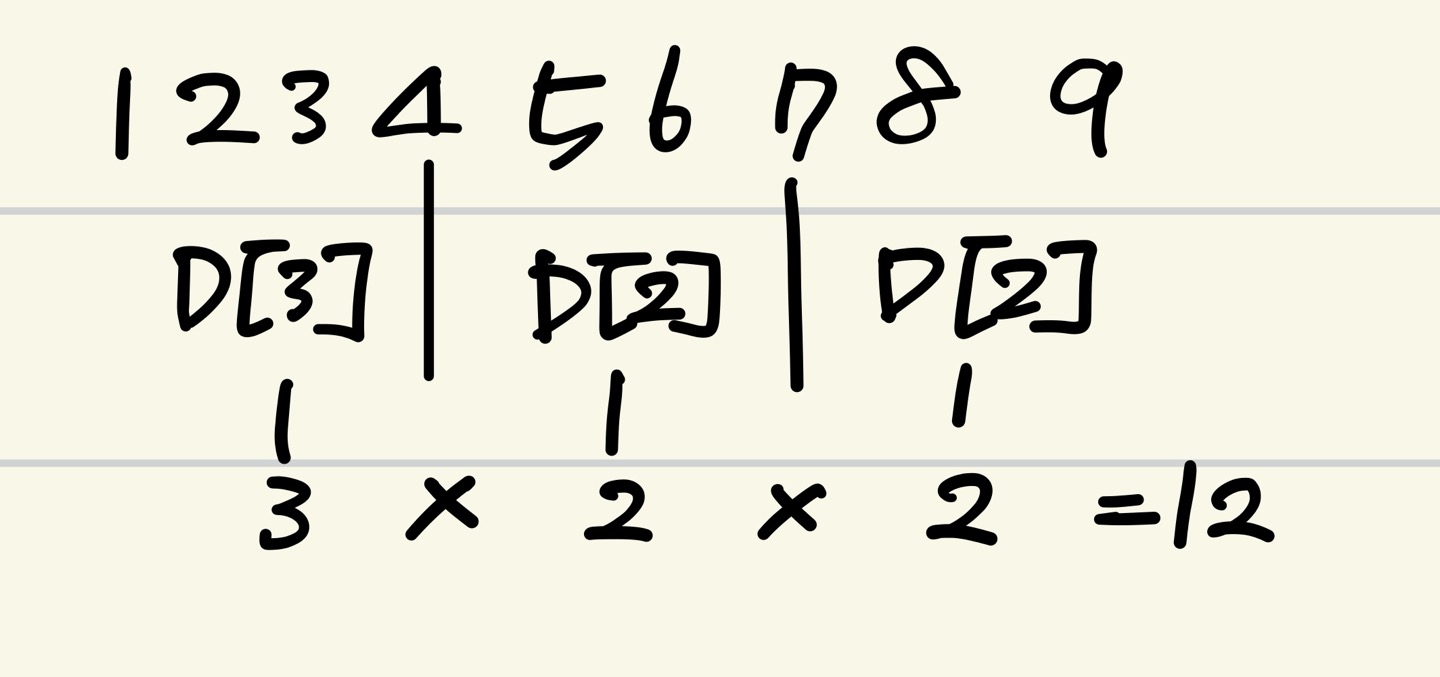 1 2 3 4 5 6 7 8 9
D[3] | D[2] | D[2]
3 × 2 × 2 = 12